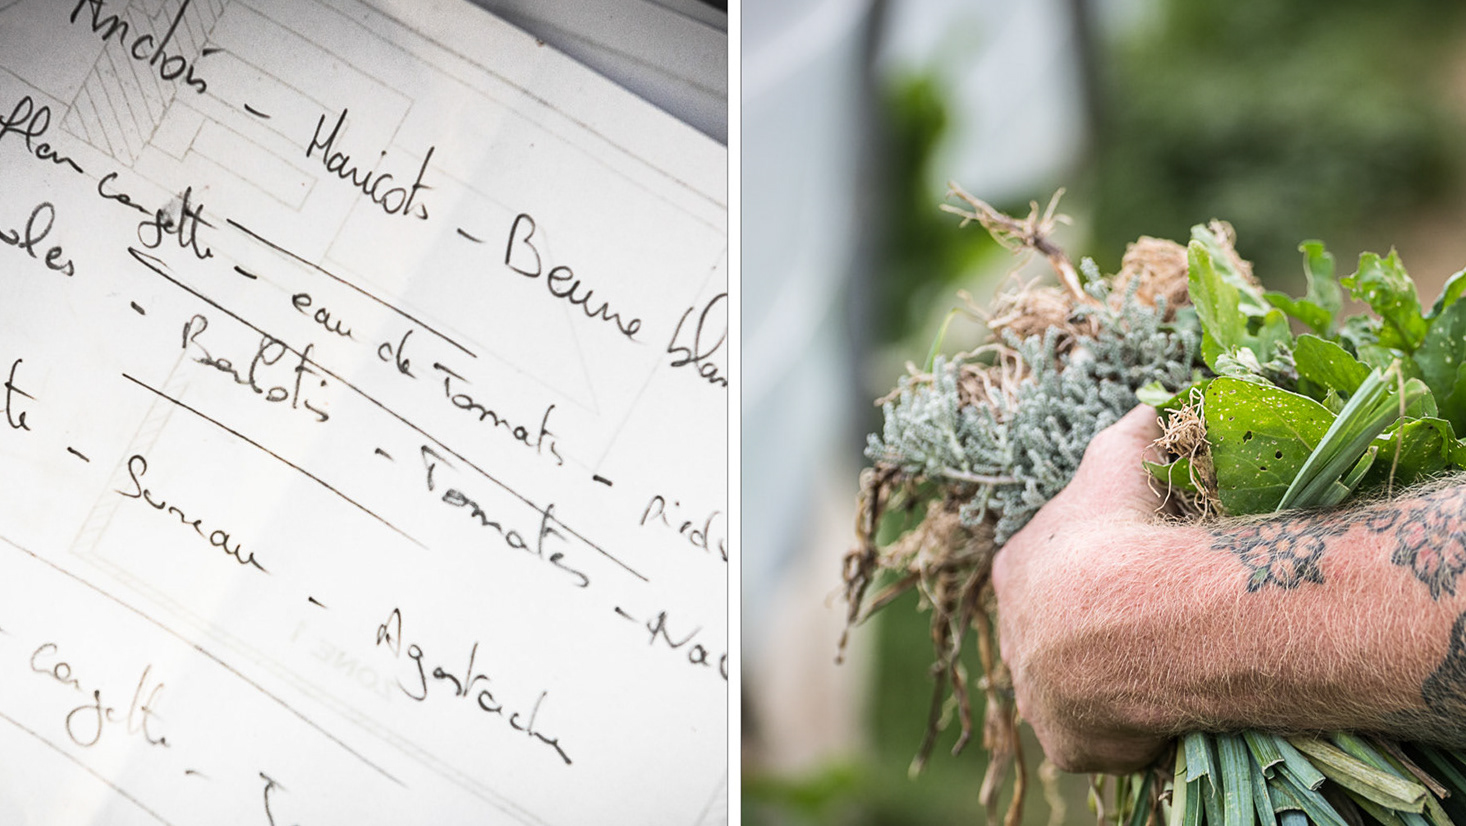 Anchois - Haricots - Beurre blan
flan courgette - eau de Tomates - pieds
oles - Borlotis - Tomates - Nac
te - Sureau - Agastache
- courgette -
ZONE 1